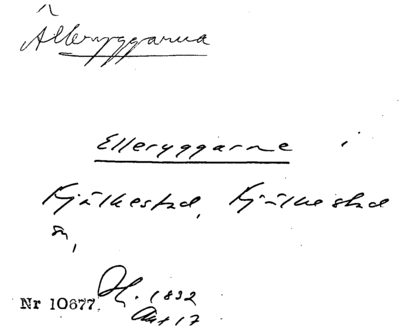 Älleryggarna
Elleryggarne i
Kjälkestad, Kjälkestad
sn,
Nr 10677. 1832
Akt 17